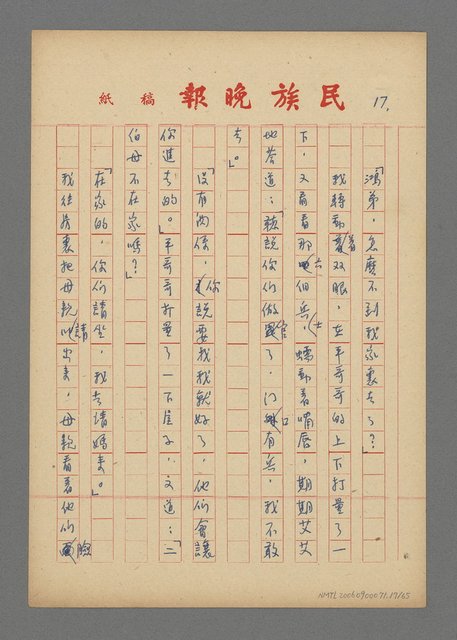 民族晚報 稿紙
17.
「鴻弟，怎麼不到我家裏去了？」
我轉動着双眼，在平哥哥的上下打量了一
下，又看看那六個兵士，蠕動着嘴唇，期期艾艾
地答道：「聽說你們做官了，門口有兵，我不敢
去。」
「沒有関係，你說要找我就好了，他們會讓
你進去的。」平哥哥打量了一下屋子，又道：「二
伯母不在家嗎？」
「在家的，你們請坐，我去請媽來。」
我從房裏把母親請出來，母親看着他們臉
NMTL20060900071.17/65